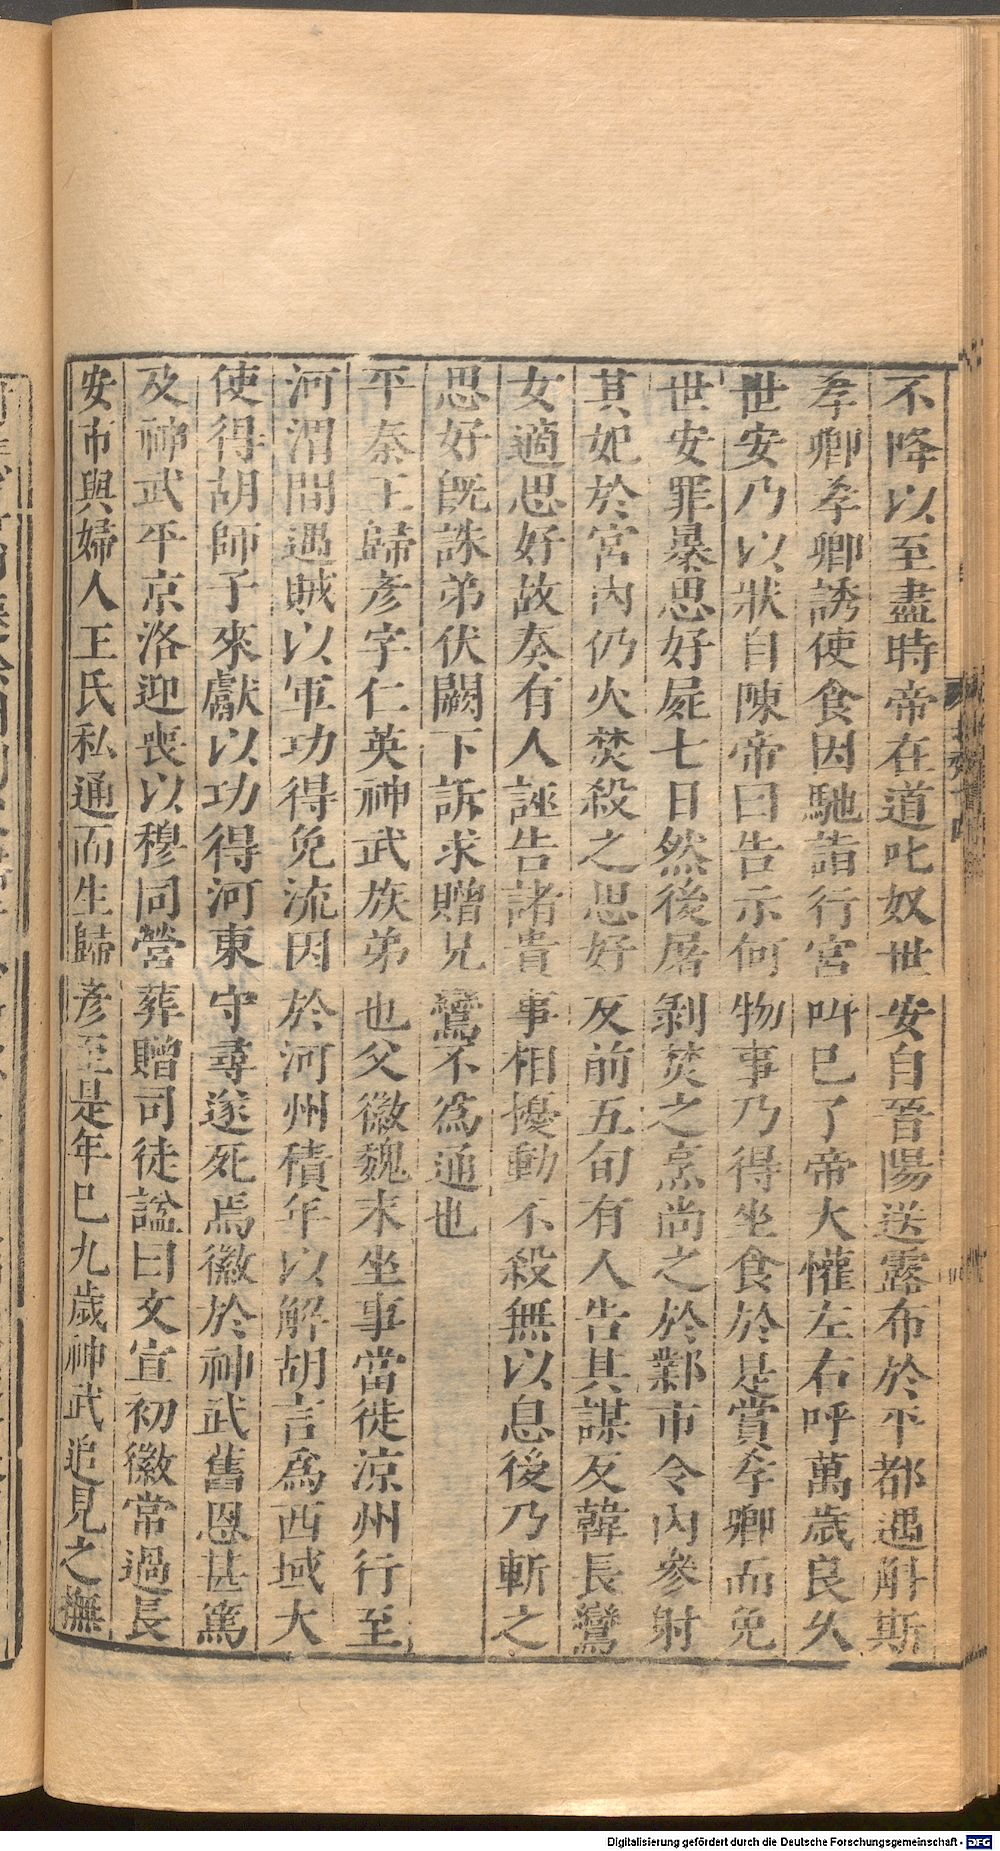 不降以至盡時帝在道叱奴世安自晉陽送露布於平都遇斛斯
孝卿孝卿誘使食因馳詣行宮叫已了帝大懽左右呼萬歲良久
世安乃以狀自陳帝曰告示何物事乃得坐食於是賞孝卿而免
世安罪暴思好屍七日然後屠剝焚之烹尚之於鄴市令內參射
其妃於宮內仍火焚殺之思好反前五旬有人告其謀反韓長鸞
女適思好故奏有人誣告諸貴事相擾動不殺無以息後乃斬之
思好旣誅弟伏闕下訴求贈兄鸞不為通也
平秦王歸彥字仁英神武族弟也父徽魏末坐事當徙涼州行至
河渭間遇賊以軍功得免流因於河州積年以解胡言為西域大
使得胡師子來獻以功得河東守尋遂死焉徽於神武舊恩甚篤
及神武平京洛迎喪以穆同營葬贈司徒諡曰文宣初徽常過長
安市與婦人王氏私通而生歸彥至是年已九歲神武追見之撫
Digitalisierung gefördert durch die Deutsche Forschungsgemeinschaft - DFG